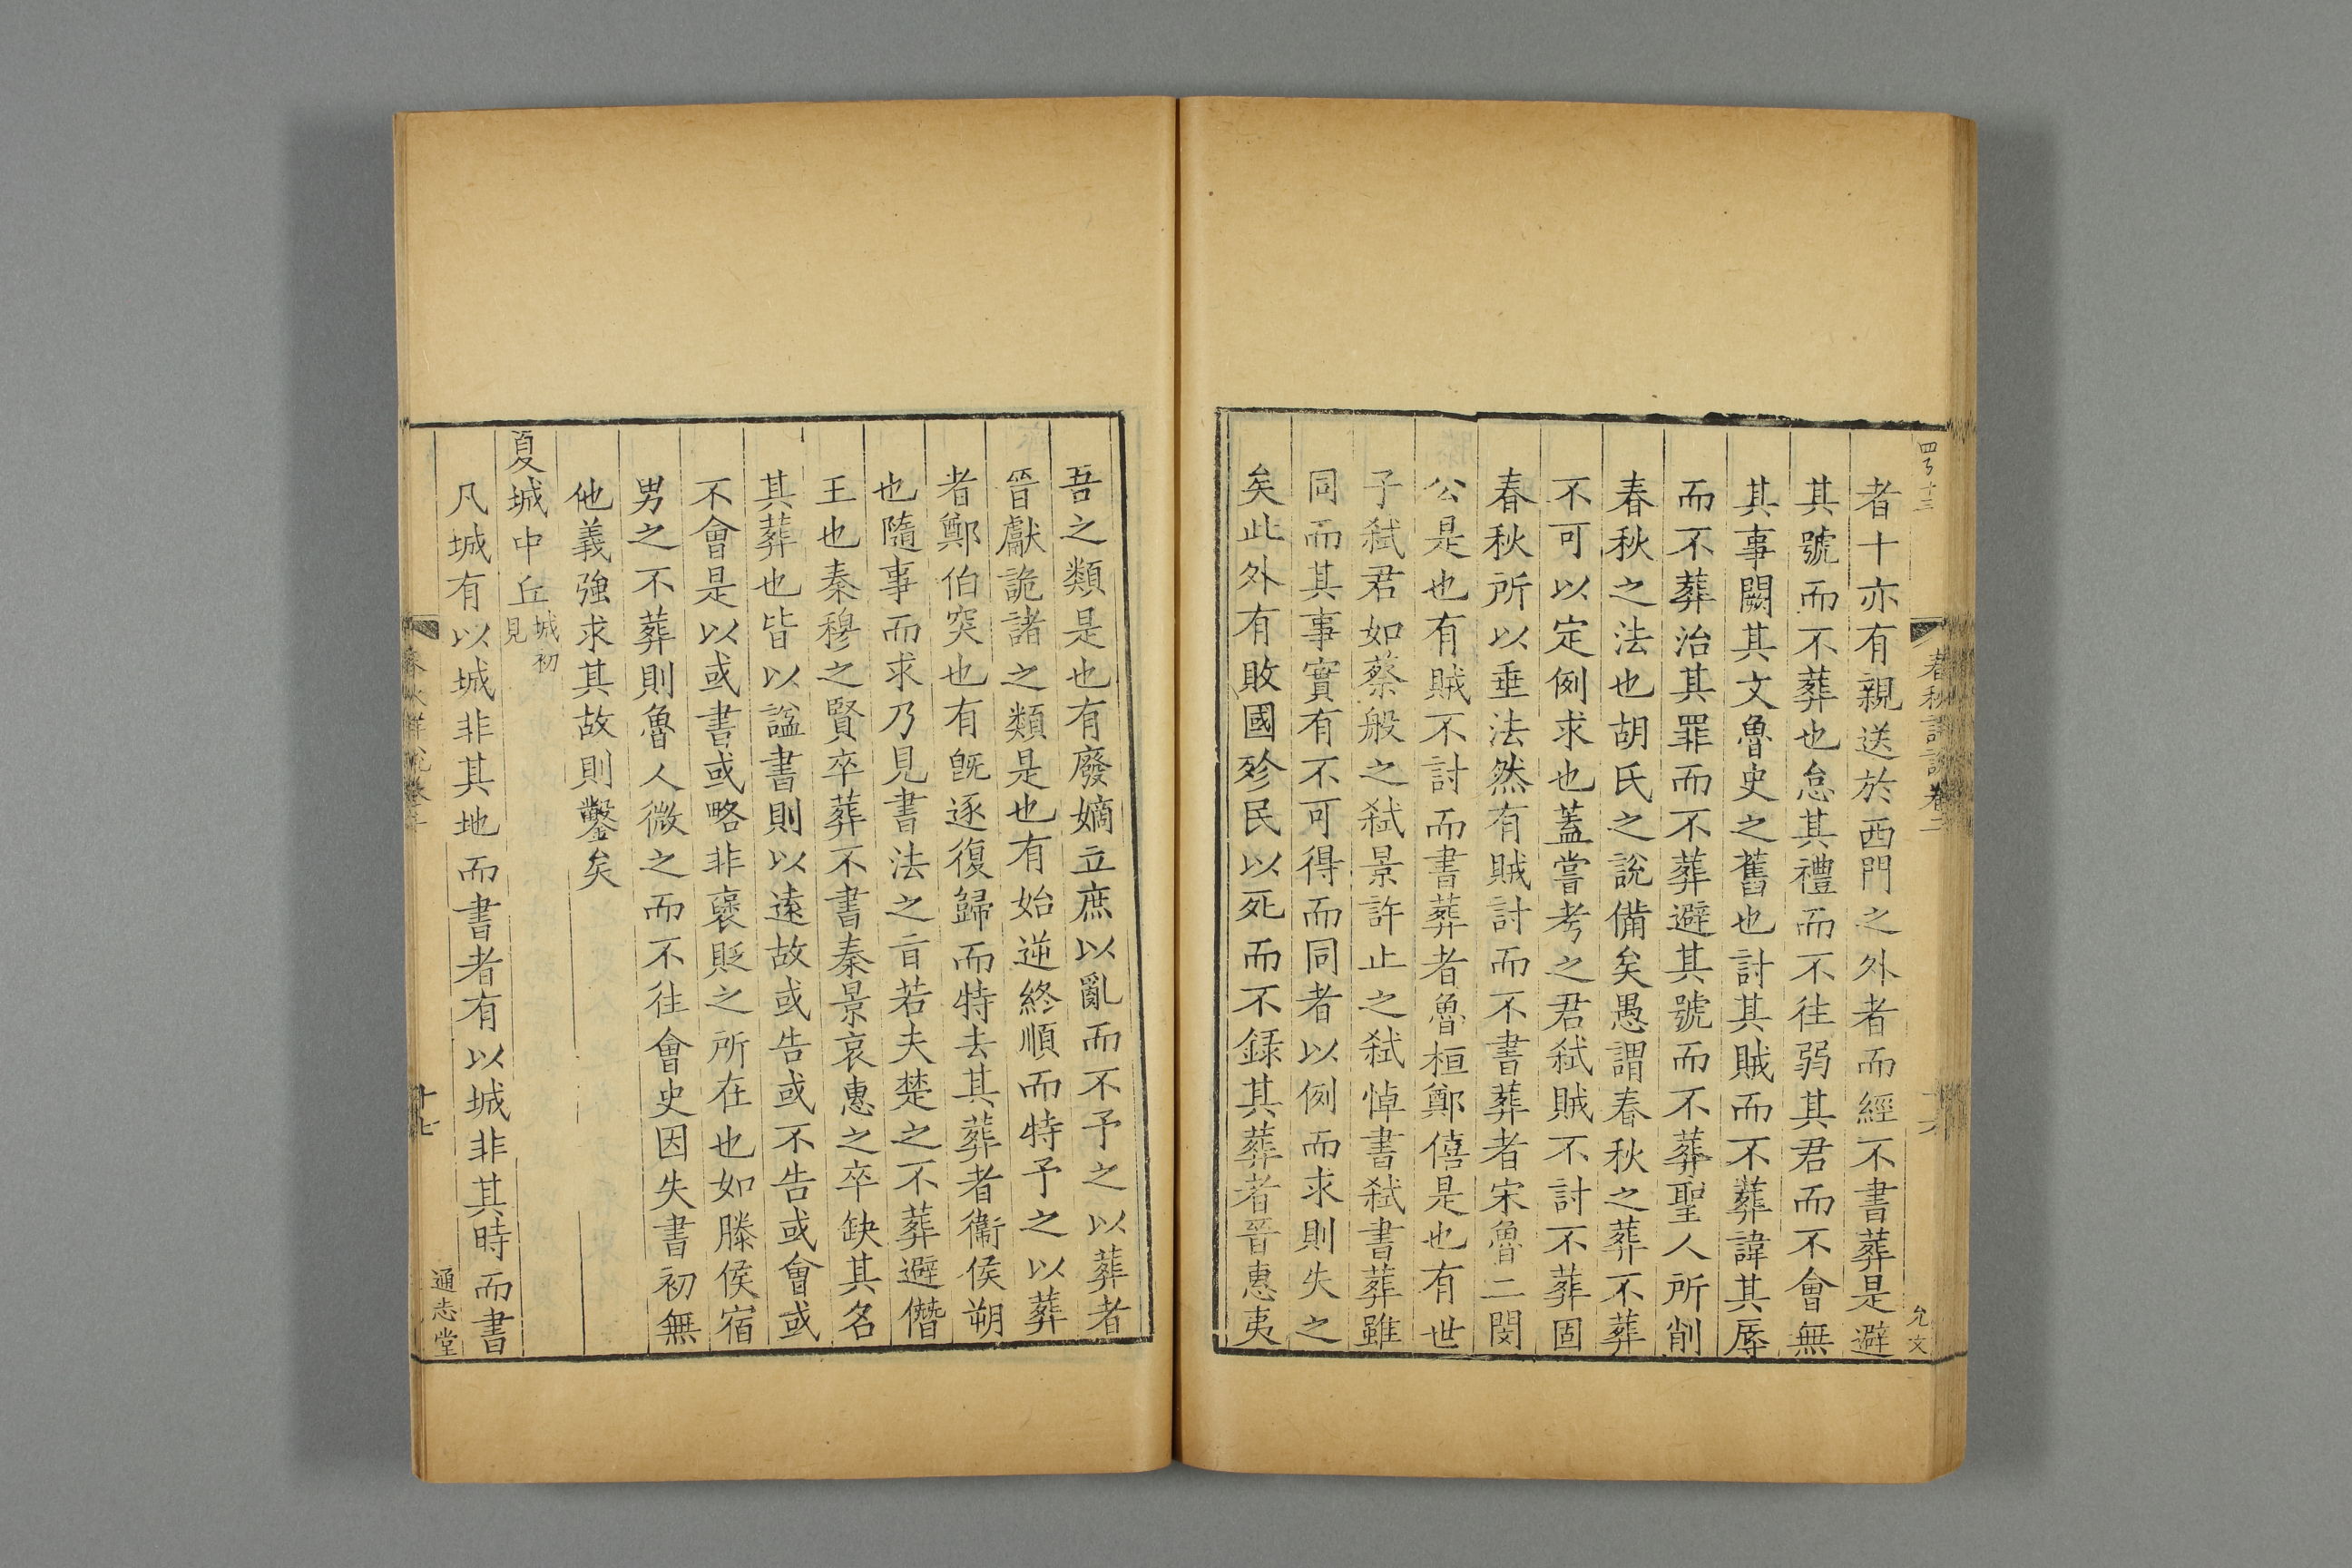 者十亦有親送於西門之外者而經不書葬是避
其號而不葬也怠其禮而不往弱其君而不會無
其事闕其文魯史之舊也討其賊而不葬諱其辱
而不葬治其罪而不葬避其號而不葬聖人所削
春秋之法也胡氏之說備矣愚謂春秋之葬不葬
不可以定例求也蓋嘗考之君弑賊不討不葬固
春秋所以垂法然有賊討而不書葬者宋魯二閔
公是也有賊不討而書葬者魯桓鄭僖是也有世
子弑君如蔡般之弑景許止之弑悼書弑書葬雖
同而其事實有不可得而同者以例而求則失之
矣此外有敗國殄民以死而不録其葬者晉惠夷
吾之類是也有廢嫡立庶以亂而不予之以葬者
晉獻詭諸之類是也有始逆終順而特予之以葬
者鄭伯突也有旣逐復歸而特去其葬者衞侯朔
也隨事而求乃見書法之㫖若夫楚之不葬避僭
王也秦穆之賢卒葬不書秦景哀惠之卒缺其名
其葬也皆以諡書則以遠故或告或不告或會或
不會是以或書或略非襃貶之所在也如滕侯宿
男之不葬則魯人微之而不往會史因失書初無
他義強求其故則鑿矣
夏城中丘城初見
凡城有以城非其地而書者有以城非其時而書
春秋詳說卷二
十七
通志堂
允文